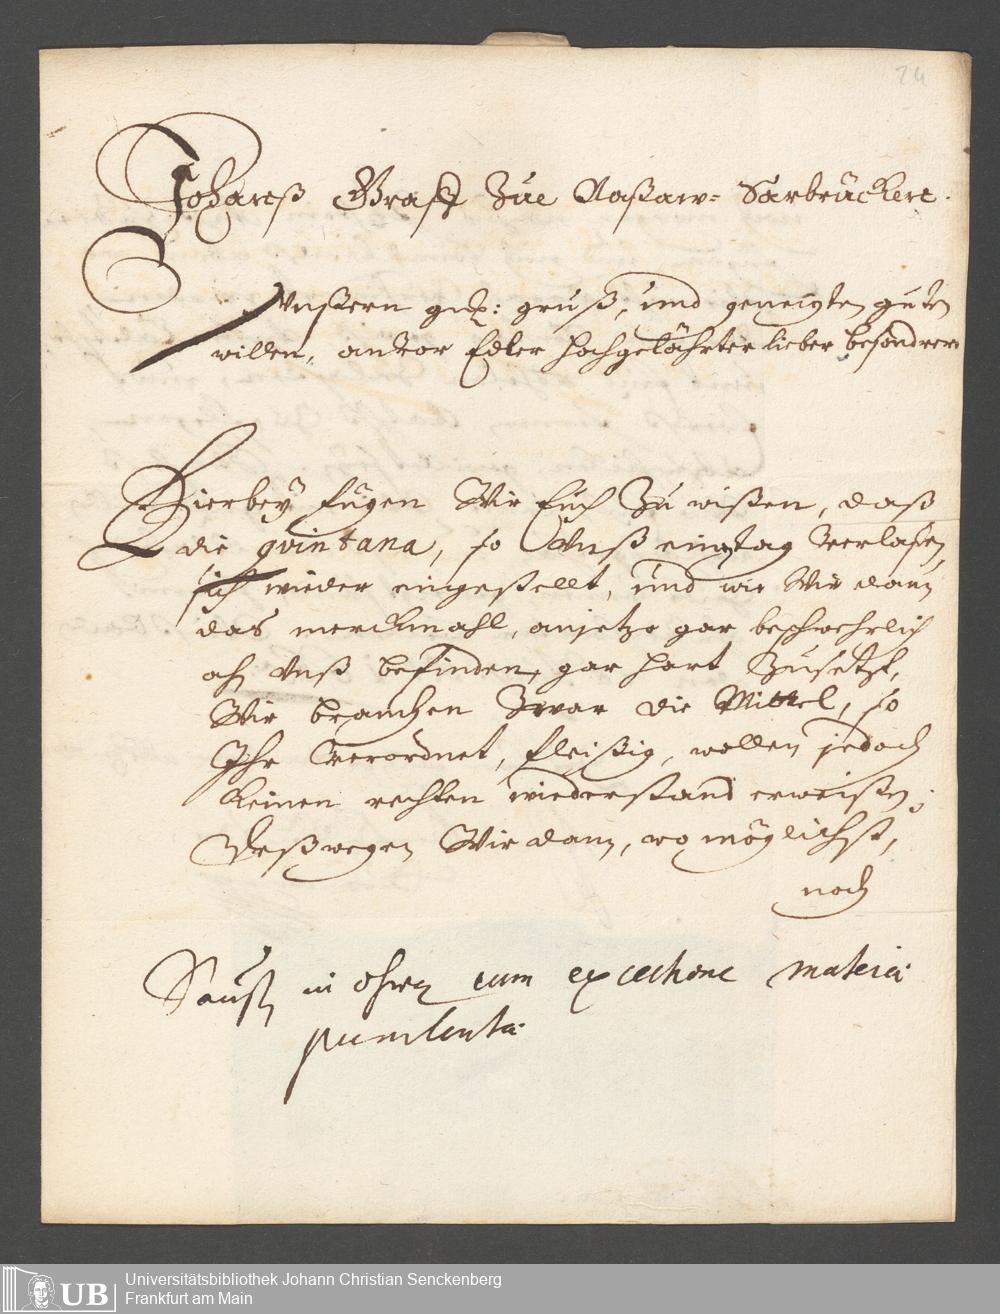 24
Johanneß Graff Zue Naßaw- Sarbrücken.
Vnsern gnd: gruß, und geneigten guten
willen, anvor Edler Hochgelährter lieber besondrer
Hierbey fügen Wir Euch Zu wißen, daß
die quintana, so Vnß eing tag verlaßen,
sich wieder eingestellt, und wie Wir dann
das merckmahl, anjetzo gar beschwehrlich
ahn Vnß befinden, gar hart Zusetzt,
Wir brauchen Zwar die Mittel, so
Ihr verordnet, fleißig, wollen jedoch
keinen rechten wiederstand erweißen;
Deßwegen Wir dann, wo möglichst,
noch
Sauß in ohren cum
materiæ
purulentæ
UB
Universitätsbibliothek Johann Christian Senckenberg
Frankfurt am Main